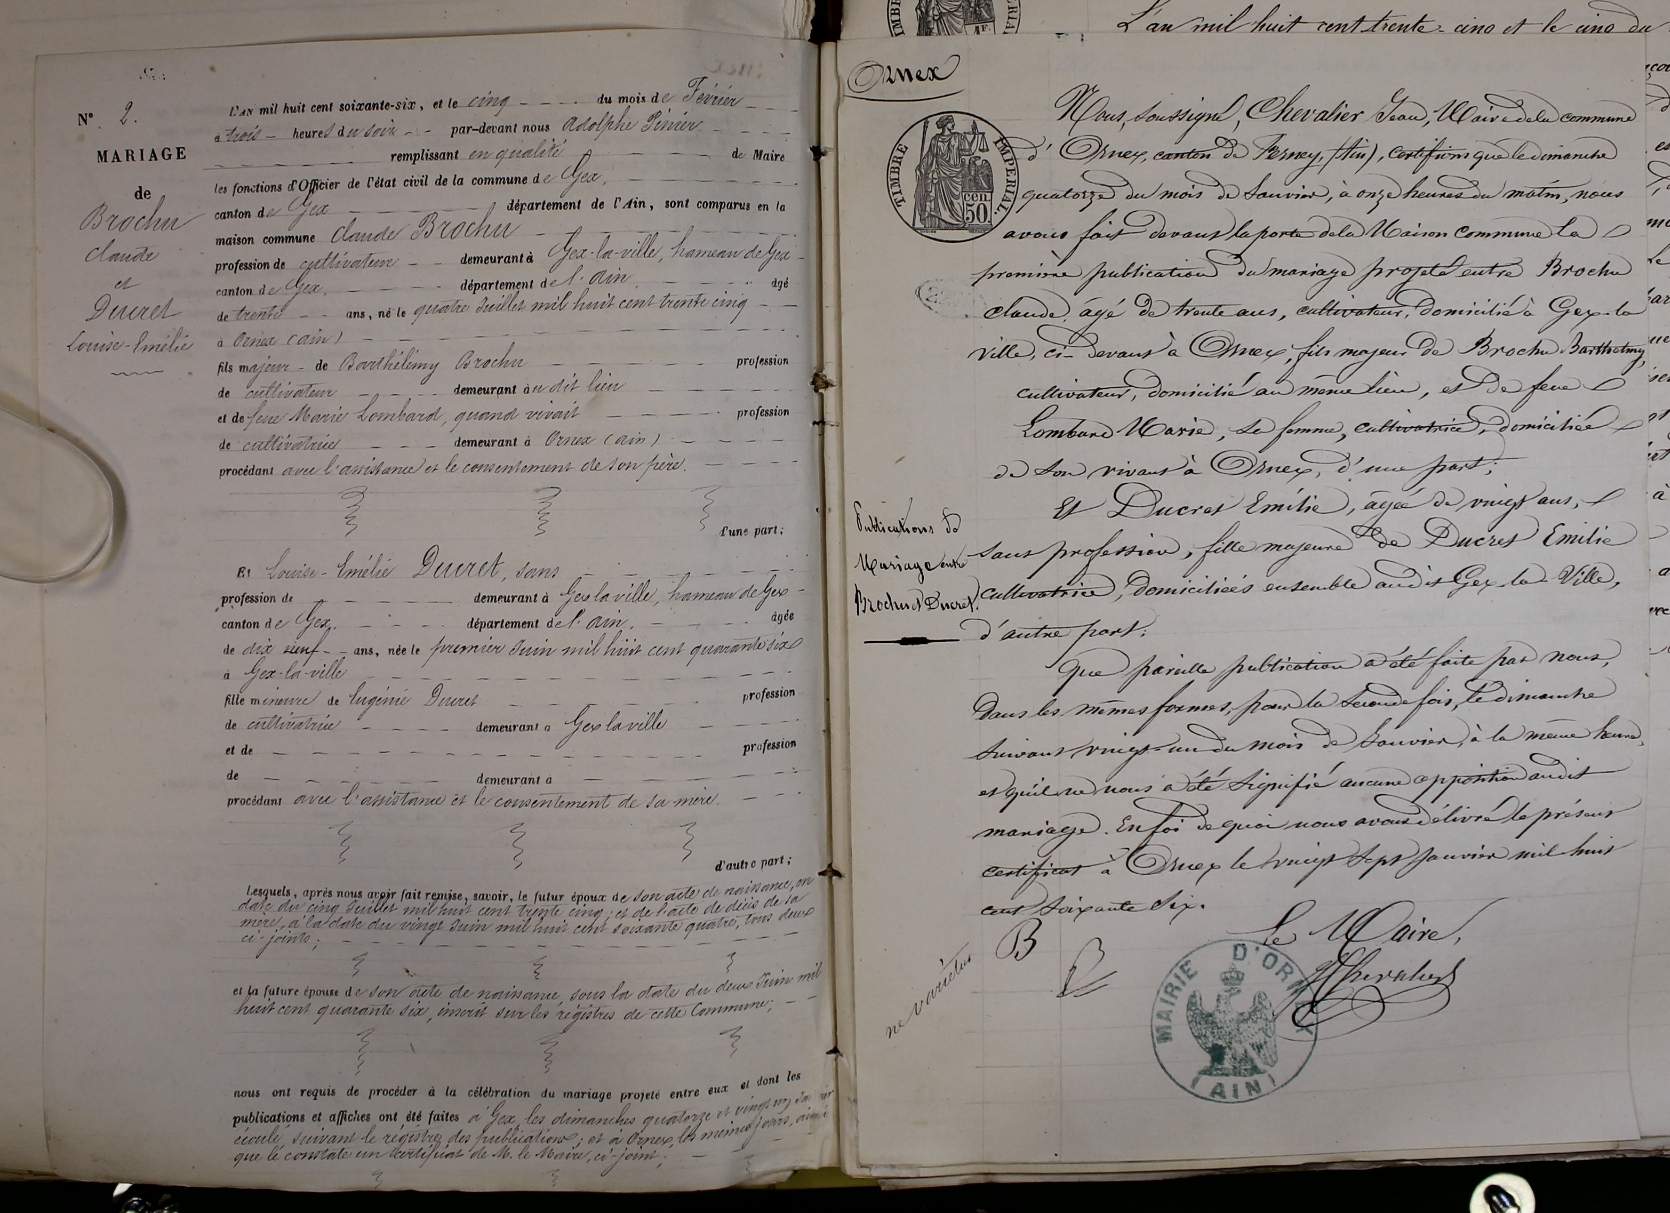 N° 2.
MARIAGE
de
Brochu
Claude
et
Ducret
Louise-Emélie
L'AN mil huit cent soixante-six, et le cinq du mois de Février
à trois heures du soir par-devant nous Adolphe
remplissant en qualité de Maire
les fonctions d'Officier de l'état civil de la commune de Gex,
canton de Gex département de l'Ain, sont comparus en la
maison commune Claude Brochu
profession de cultivateur demeurant à Gex-la-ville, hameau de Gex
canton de Gex, département de l'Ain, âgé
de trente ans, né le quatre Juillet mil huit cent trente cinq
à Ornex (Ain)
fils majeur de Barthélémy Brochu profession
de cultivateur demeurant au dit lieu
et de feue Marie Lombard, quand vivait profession
de cultivatrice demeurant à Ornex (Ain)
procédant avec l'assistance et le consentement de son père.
d'une part;
Et Louise-Emélie Ducret, sans
profession de demeurant à Gex la ville, hameau de Gex
canton de Gex, département de l'Ain, âgée
de dix neuf ans, née le premier Juin mil huit cent quarante six
à Gex-la-ville
fille mineure de Eugénie Ducret profession
de cultivatrice demeurant à Gex la ville
et de profession
de demeurant à
procédant avec l'assistance et le consentement de sa mère.
d'autre part;
Lesquels, après nous avoir fait remise, savoir, le futur époux de son acte de naissance, en
date du cinq Juillet mil huit cent trente cinq; et de l'acte de décès de sa
mère, à la date du vingt Juin mil huit cent soixante quatre, tous deux
ci-joints;
et la future épouse de son acte de naissance, sous la date du deux Juin mil
huit cent quarante six, inscrit sur les régistres de cette Commune;
nous ont requis de procéder à la célébration du mariage projeté entre eux et dont les
publications et affiches ont été faites à Gex, les dimanches quatorze et vingt un
écoulé, suivant le régistre des publications; et à Ornex, les mêmes jours, ainsi
que le constate un certificat de M. le Maire, ci-joint;
L'an mil huit cent trente-cinq et le cinq du
Ornex
TIMBRE IMPERIAL
50 cen.
Nous, soussigné, Chevalier Jean, Maire de la commune
d'Ornex, canton de Ferney, (Ain), certifions que le dimanche
quatorze du mois de Janvier, à onze heures du matin, nous
avons fait devant la porte de la Maison Commune la
première publication du mariage projeté entre Brochu
Claude, âgé de trente ans, cultivateur, domicilié à Gex-la
ville, ci-devant à Ornex, fils majeur de Brochu Barthelmy,
cultivateur, domicilié au même lieu, et de feue
Lombard Marie, sa femme, cultivatrice, domiciliée
de son vivant à Ornex, d'une part;
Et Ducret Emélie, âgée de vingt ans,
sans profession, fille majeure de Ducret Emilie
cultivatrice, domiciliées ensemble audit Gex-la-Ville,
d'autre part;
Publications de
Mariage entre
Brochu et Ducret.
Que pareille publication a été faite par nous,
dans les mêmes formes, pour la seconde fois, le dimanche
suivant vingt-un du mois de Janvier, à la même heure,
et qu'il ne nous a été signifié aucune opposition audit
mariage. En foi de quoi nous avons délivré le présent
certificat à Ornex le vingt sept Janvier mil huit
cent soixante six.
Le Maire,
JChevalier
B
ne varietur
MAIRIE D'ORNEX
(AIN)